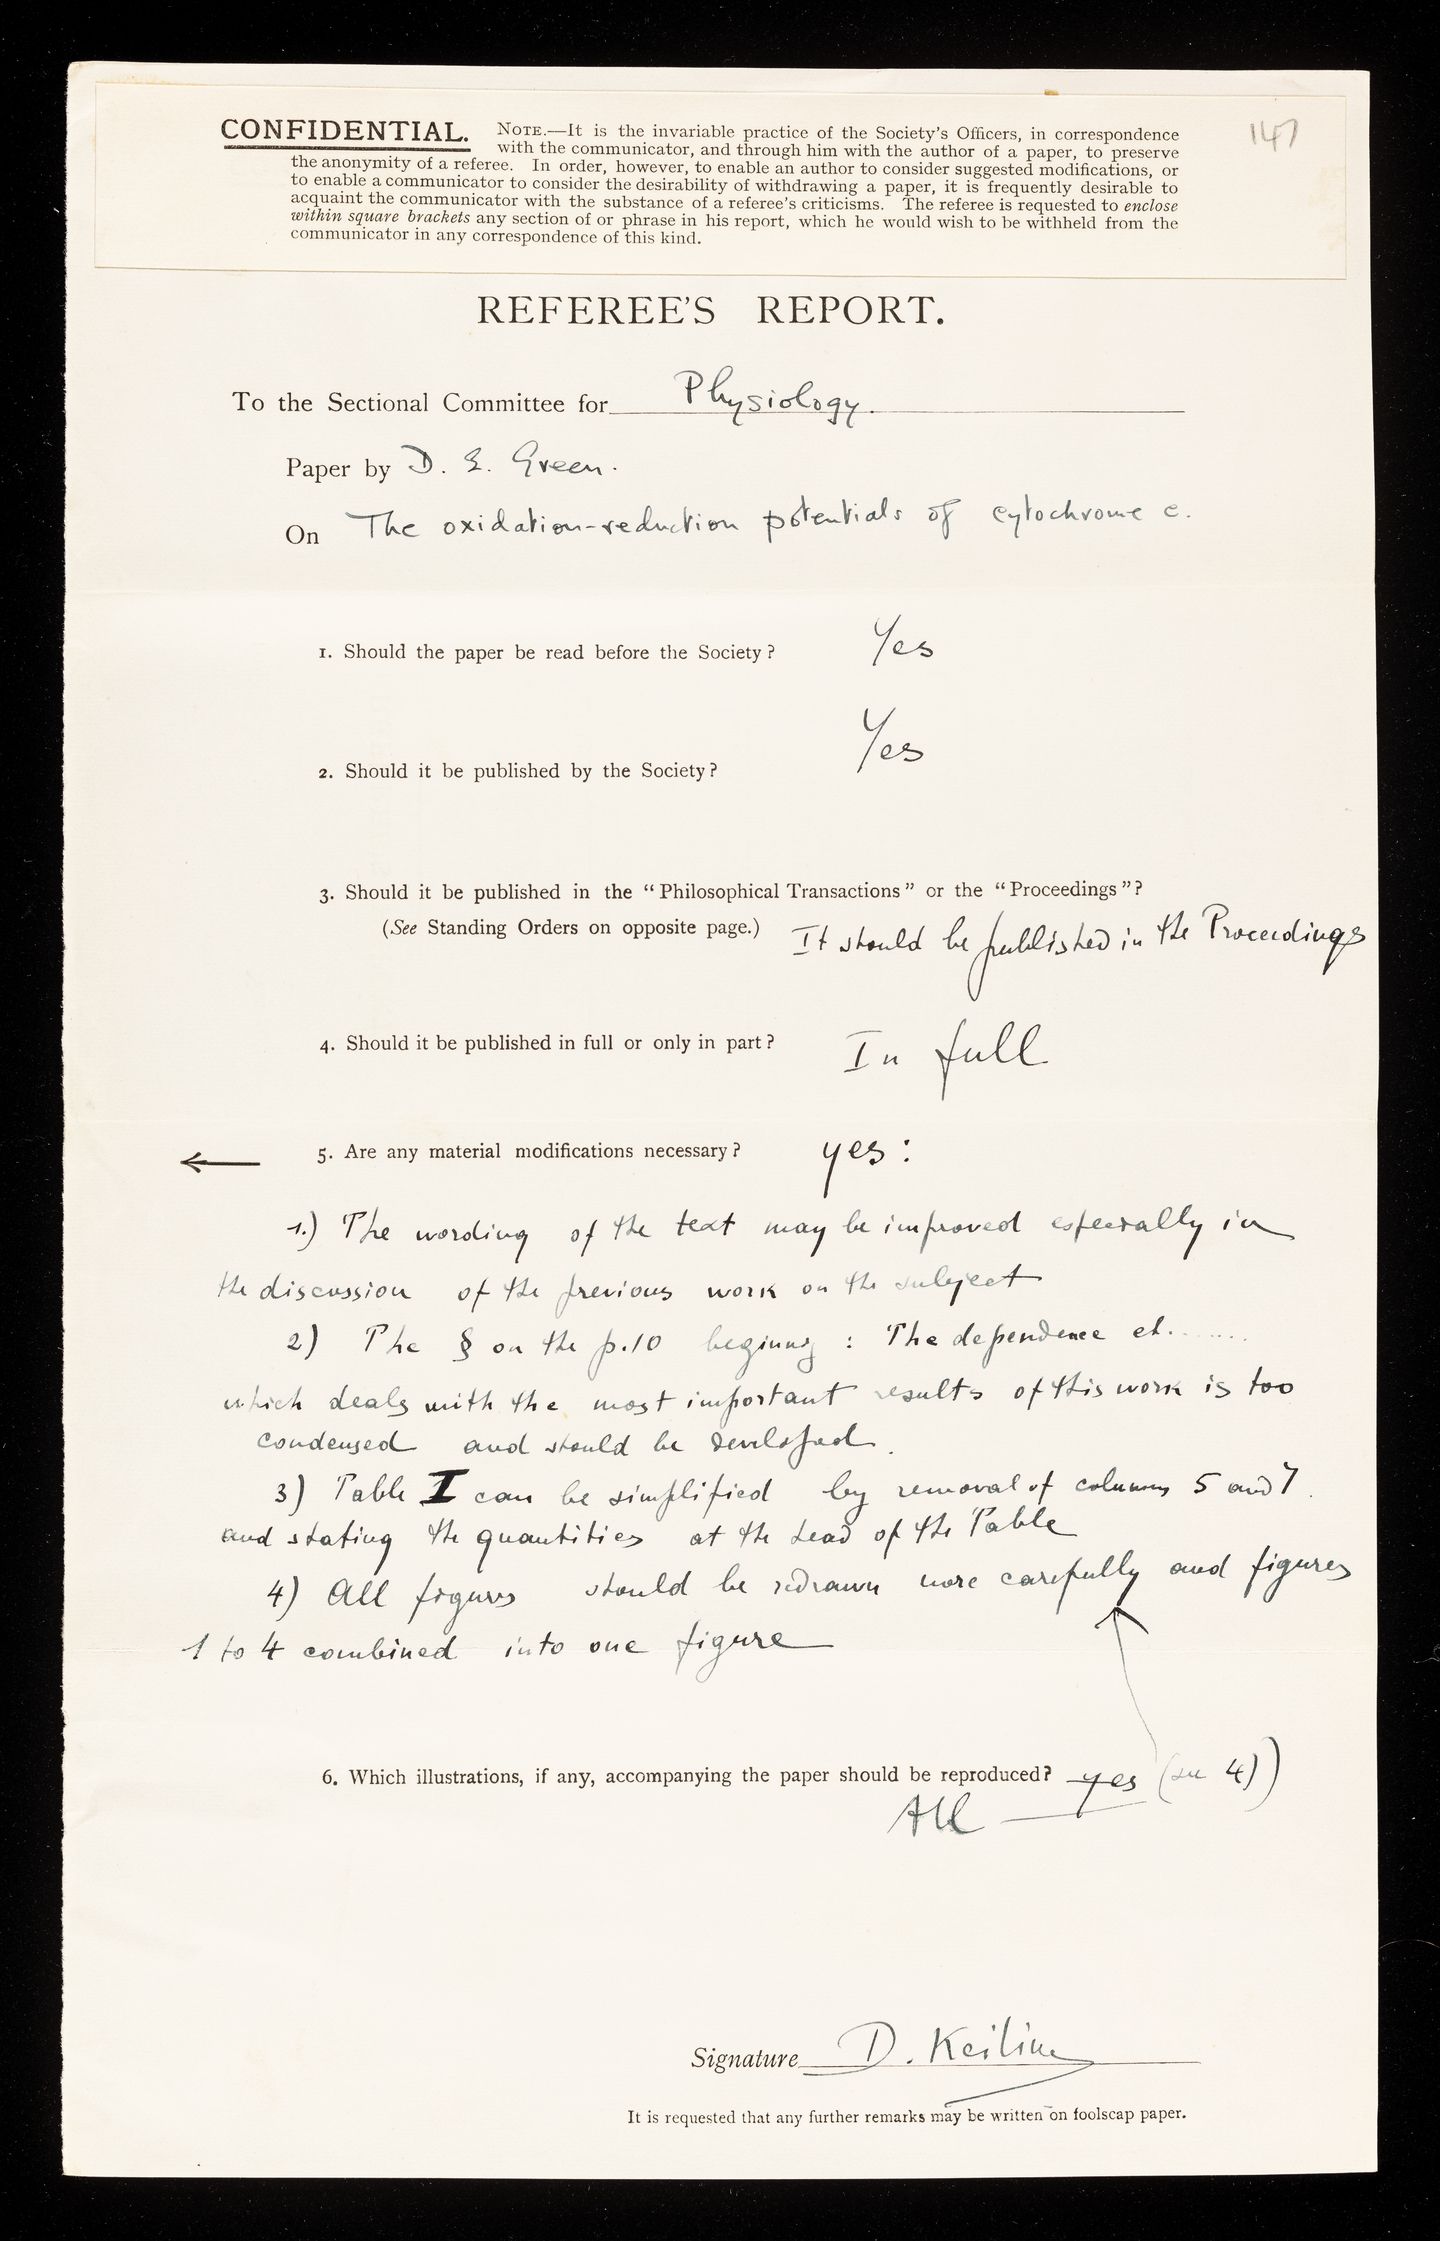 CONFIDENTIAL. NOTE.—It is the invariable practice of the Society's Officers, in correspondence
147
with the communicator, and through him with the author of a paper, to preserve
the anonymity of a referee. In order, however, to enable an author to consider suggested modifications, or
to enable a communicator to consider the desirability of withdrawing a paper, it is frequently desirable to
acquaint the communicator with the substance of a referee's criticisms. The referee is requested to enclose
within square brackets any section of or phrase in his report, which he would wish to be withheld from the
communicator in any correspondence of this kind.
REFEREE'S REPORT.
To the Sectional Committee for Physiology.
Paper by D. E. Green.
On The oxidation-reduction potentials of cytochrome c.
1. Should the paper be read before the Society? Yes
2. Should it be published by the Society? Yes
3. Should it be published in the "Philosophical Transactions" or the "Proceedings"?
(See Standing Orders on opposite page.) It should be published in the Proceedings
4. Should it be published in full or only in part? In full
← 5. Are any material modifications necessary? yes:
1.) The wording of the text may be improved especially in
the discussion of the previous work on the subject
2) The § on the p.10 beginng : The dependence et.......
which deals with the most important results of this work is too
condensed and should be developed.
3) Table I can be simplified by removal of columns 5 and 7.
and stating the quantities at the head of the Table
4) All figures should be redrawn more carefully and figures
1 to 4 combined into one figure
6. Which illustrations, if any, accompanying the paper should be reproduced? yes (see 4))
All
Signature D. Keilin
It is requested that any further remarks may be written on foolscap paper.